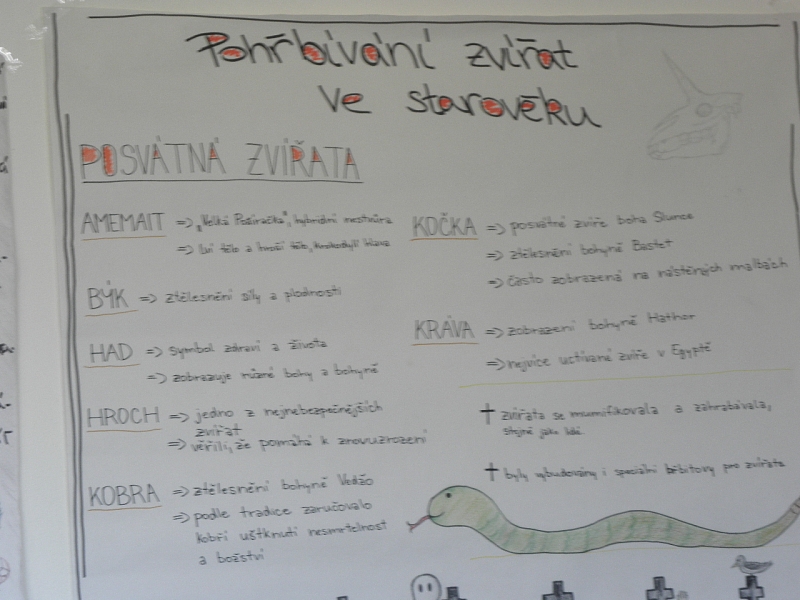 Pohřbívání zvířat
ve starověku
POSVÁTNÁ ZVÍŘATA
AMEMAIT => „Velká Požíračka", hybridní nestvůra
=> lví tělo a hroší tělo, krokodýlí hlava
BÝK => ztělesnění síly a plodnosti
HAD => symbol zdraví a života
=> zobrazuje různé bohy a bohyně
HROCH => jedno z nejnebezpečnějších
zvířat
=> věřili, že pomáhá k znovuzrození
KOBRA => ztělesnění bohyně Vedžo
=> podle tradice zaručovalo
kobří uštknutí nesmrtelnost
a božství
KOČKA => posvátné zvíře boha Slunce
=> ztělesnění bohyně Bastet
=> často zobrazená na nástěnných malbách
KRÁVA => zobrazení bohyně Hathor
=> nejvíce uctívané zvíře v Egyptě
† zvířata se mumifikovala a zahrabávala,
stejně jako lidé
† byly vybudovány i speciální hřbitovy pro zvířata